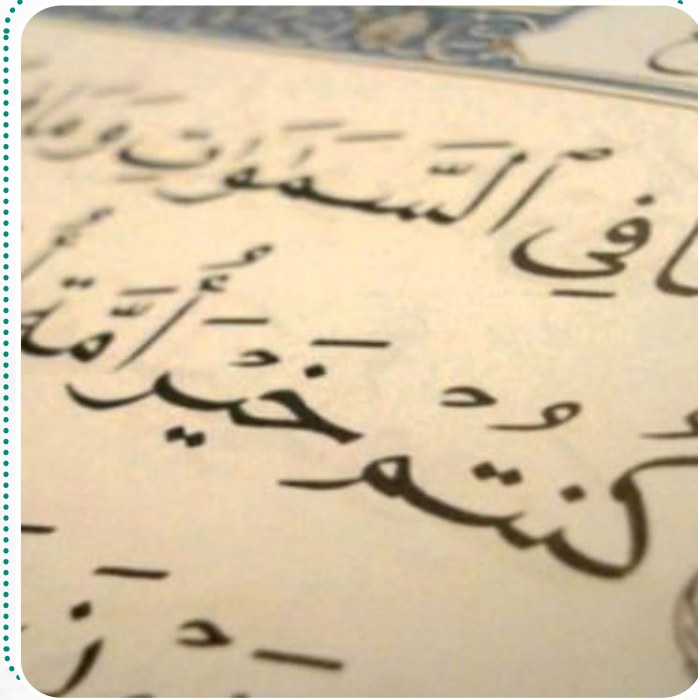 فِي ٱلسَّمَٰوَٰتِ وَمَا
كُنتُمْ خَيْرَ أُمَّةٍ